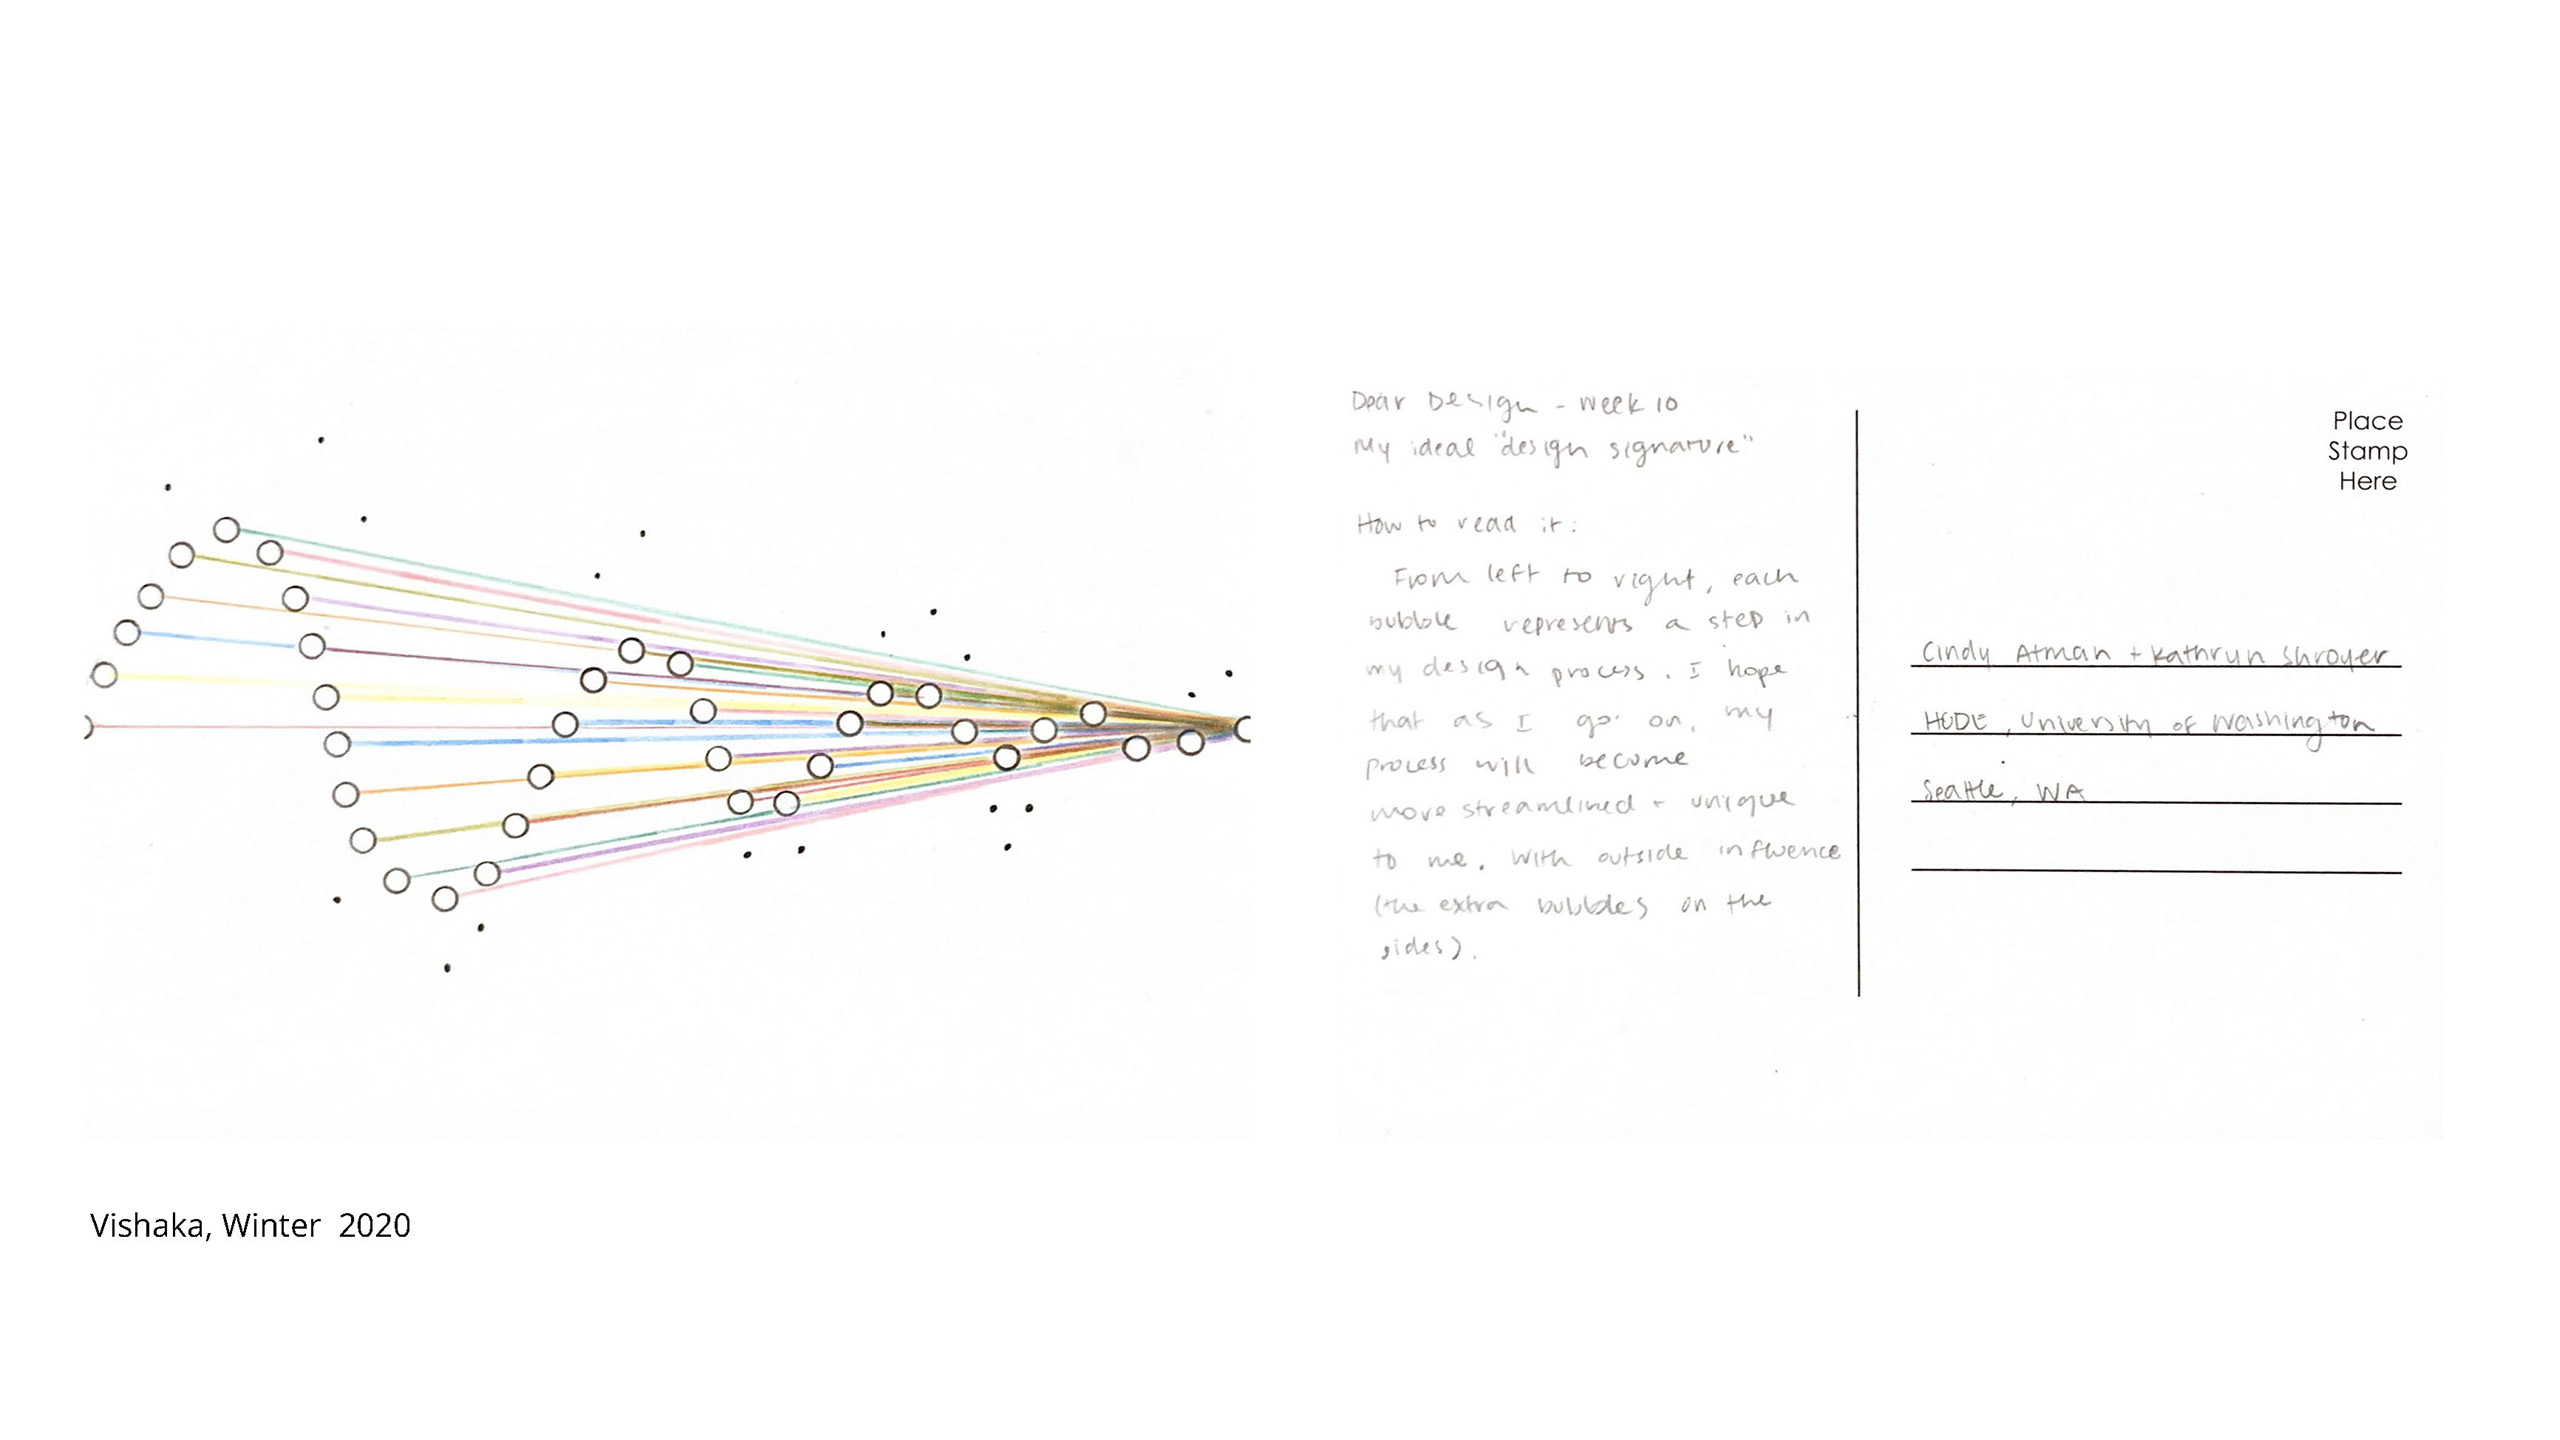 Dear Design - Week 10
My ideal "design signature"
How to read it:
From left to right, each
bubble represents a step in
my design process. I hope
that as I go on, my
process will become
more streamlined + unique
to me, with outside influence
(the extra bubbles on the
sides).
Place
Stamp
Here
Cindy Atman + Kathryn Shroyer
HCDE, University of Washington
Seattle, WA
Vishaka, Winter 2020